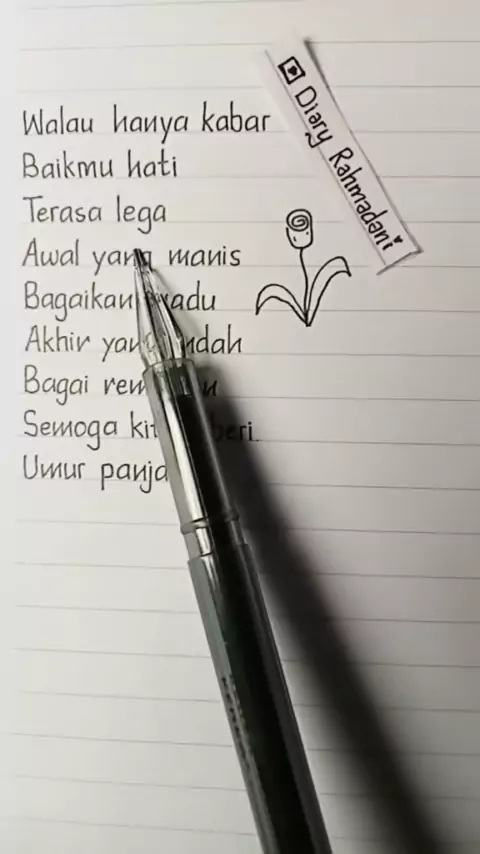 Walau hanya kabar
Baikmu hati
Terasa lega
Awal yang manis
Bagaikan madu
Akhir yang indah
Bagai
Semoga kita
Umur
Diary Rahmadani